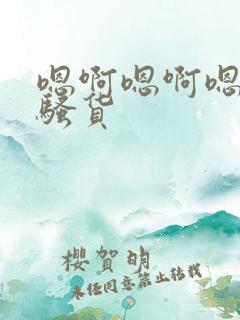 嗯啊嗯啊嗯
骚货
樱贺明
未经同意禁止转载